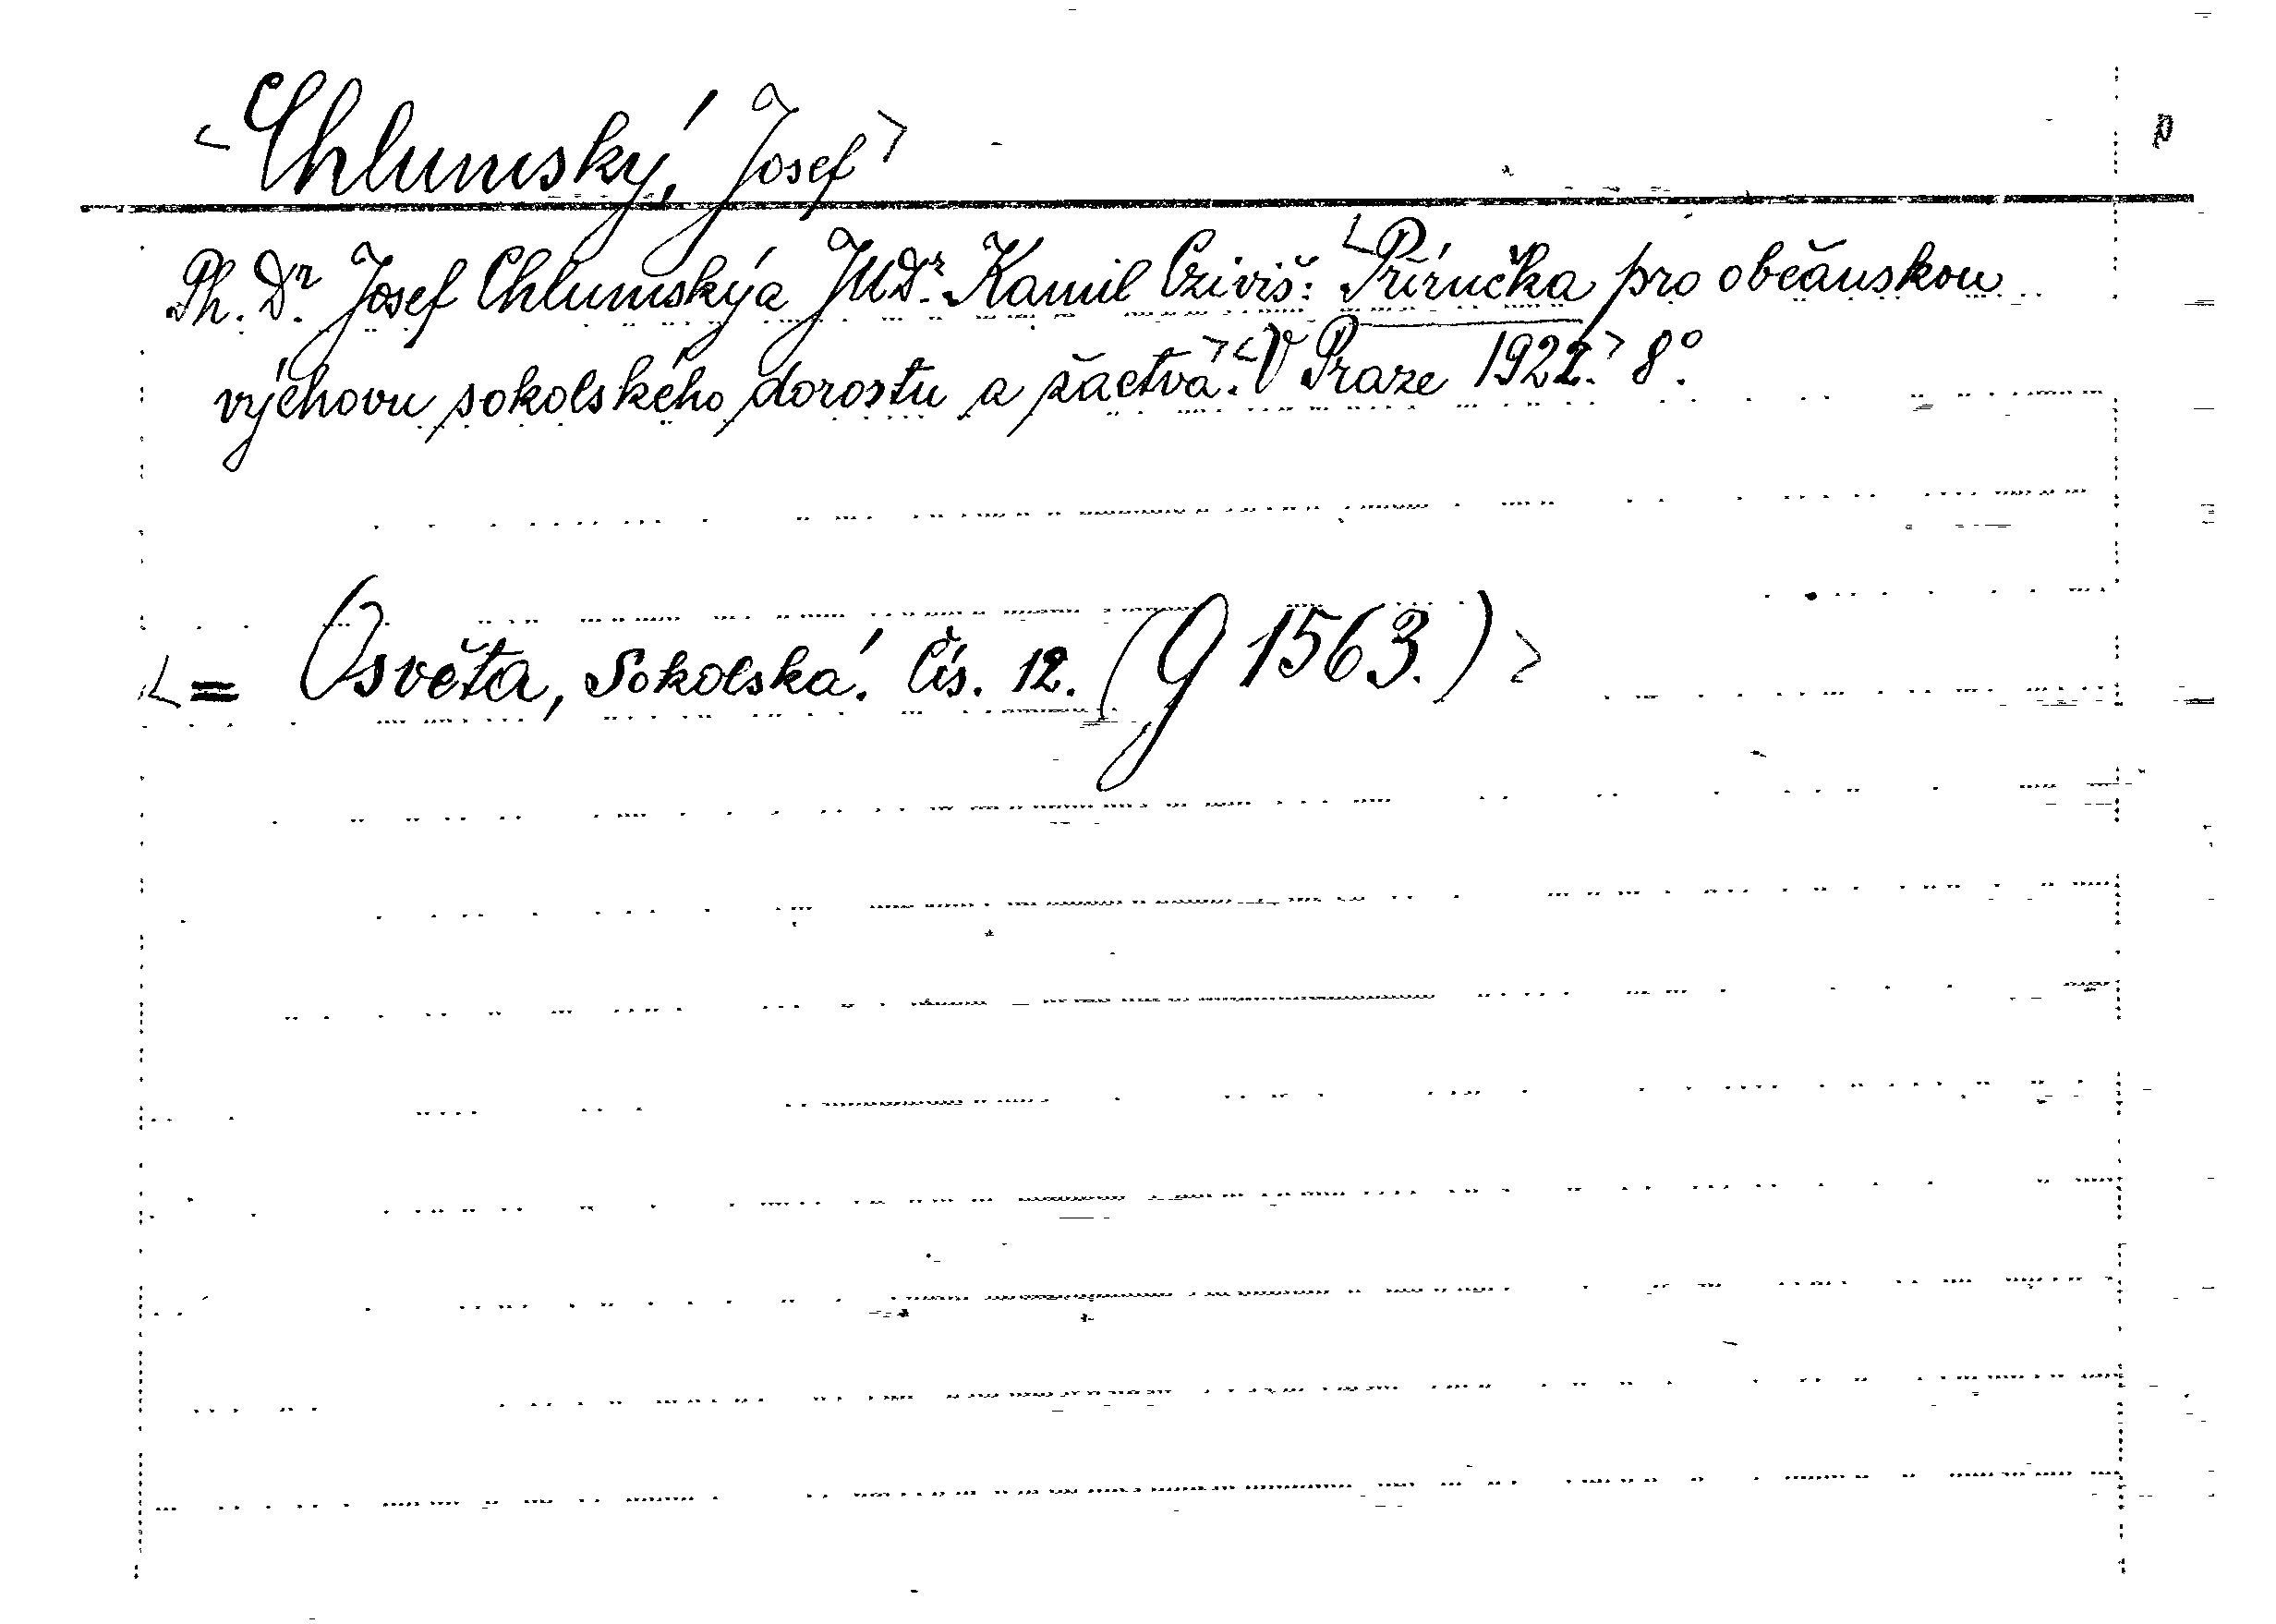 <Chlumský, Josef>
Ph. Dr. Josef Chlumský a JUDr. Kamil Cziviš: <Příručka pro občanskou
výchovu sokolského dorostu a žactva.> <V Praze 1922.> 8°.
<= Osvěta, Sokolská. Čís. 12. (g 1563.)>